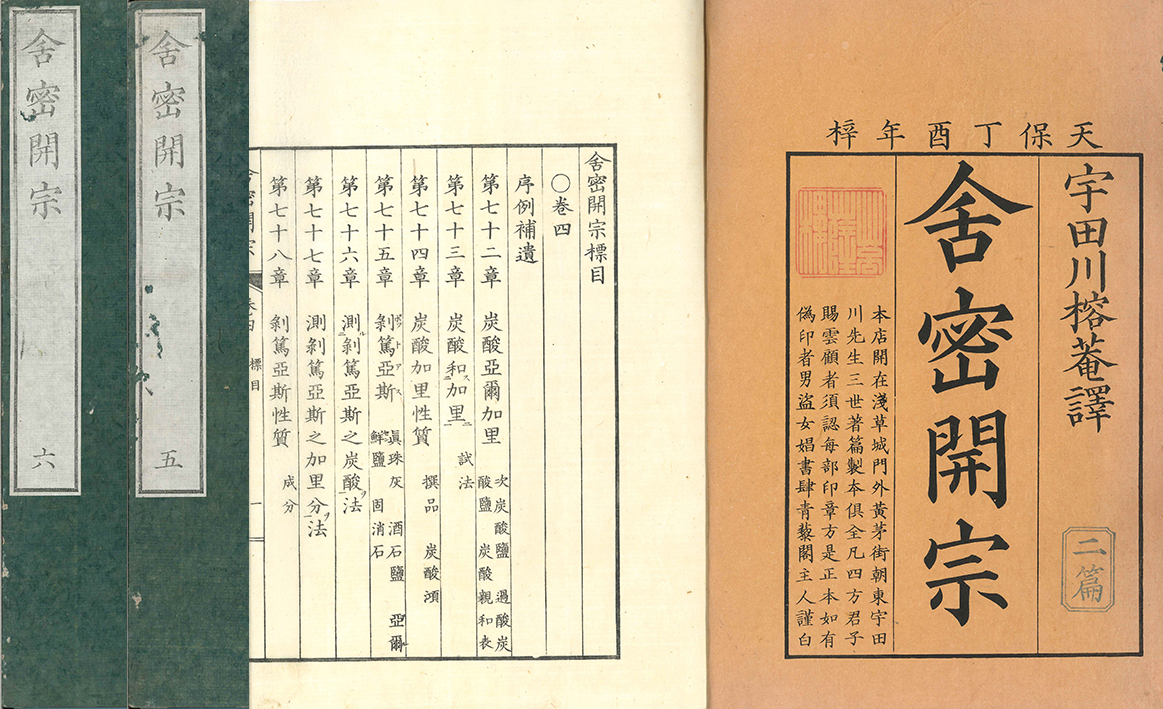 天保丁酉年梓
宇田川榕菴譯
二篇
舍密開宗
本店開在淺草城門外黃茅街朝東宇田
川先生三世著篇製本俱全凡四方君子
賜雲顧者須認每部印章方是正本如有
偽印者男盜女娼書肆青藜閣主人謹白
舍密開宗標目
〇卷四
序例補遺
第七十二章 炭酸亞爾加里 次炭酸鹽 過酸炭
酸鹽 炭酸親和表
第七十三章 炭酸和ス加里ニ 試法
第七十四章 炭酸加里性質 撰品 炭酸澒
第七十五章 剝篤亞斯 ポットアス 眞珠灰 酒石鹽 亞爾
鮮鹽 固消石
第七十六章 測ル剝篤亞斯之炭酸ヲ法
第七十七章 測剝篤亞斯之加里分ヲ法
第七十八章 剝篤亞斯性質 成分
舍密開宗 卷四 標目 一
舍密開宗 五
舍密開宗 六